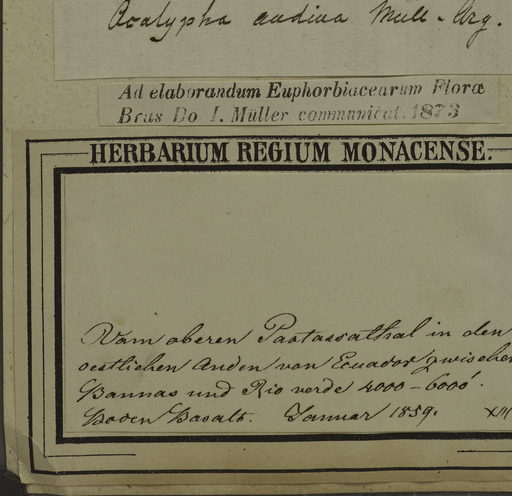 Acalypha andina Mull-Arg.
Ad elaborandum Euphorbiacearum Floræ
Bras Do. I. Müller communicat. 1873
HERBARIUM REGIUM MONACENSE.
Vom oberen Pastassathal in den
oestlichen Anden von Ecuador zwischen
Bannas und Rio verde 4000-6000'.
Boden Basalt. Januar 1859.